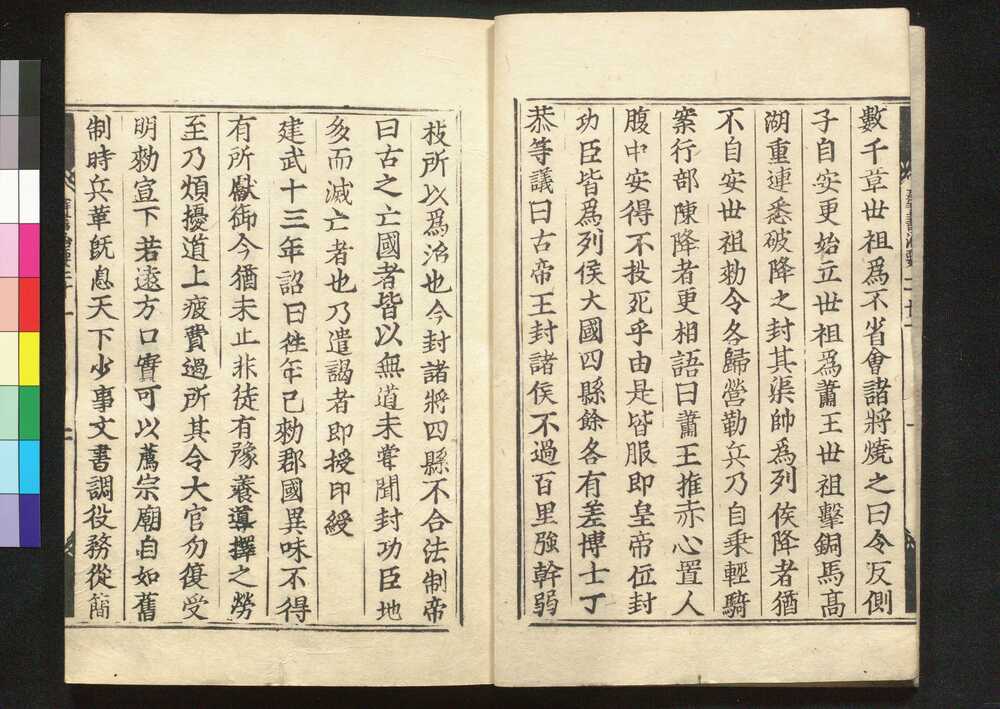 數千草世祖爲不省會諸將燒之曰令反側
子自安更始立世祖爲蕭王世祖擊銅馬髙
湖重連悉破降之封其渠帥爲列侯降者猶
不自安世祖勑令各歸營勒兵乃自乗輕騎
案行部陳降者更相語曰蕭王推赤心置人
腹中安得不投死乎由是皆服即皇帝位封
功臣皆爲列侯大國四縣餘各有差博士丁
恭等議曰古帝王封諸侯不過百里強幹弱
枝所以爲治也今封諸將四縣不合法制帝
曰古之亡國者皆以無道未甞聞封功臣地
多而滅亡者也乃遣謁者即授印綬
建武十三年詔曰徃年已勑郡國異味不得
有所獻御今猶未止非徒有豫養導擇之勞
至乃煩擾道上疲費過所其令大官勿復受
明勑宣下若遠方口實可以薦宗廟自如舊
制時兵革旣息天下少事文書調役務從簡